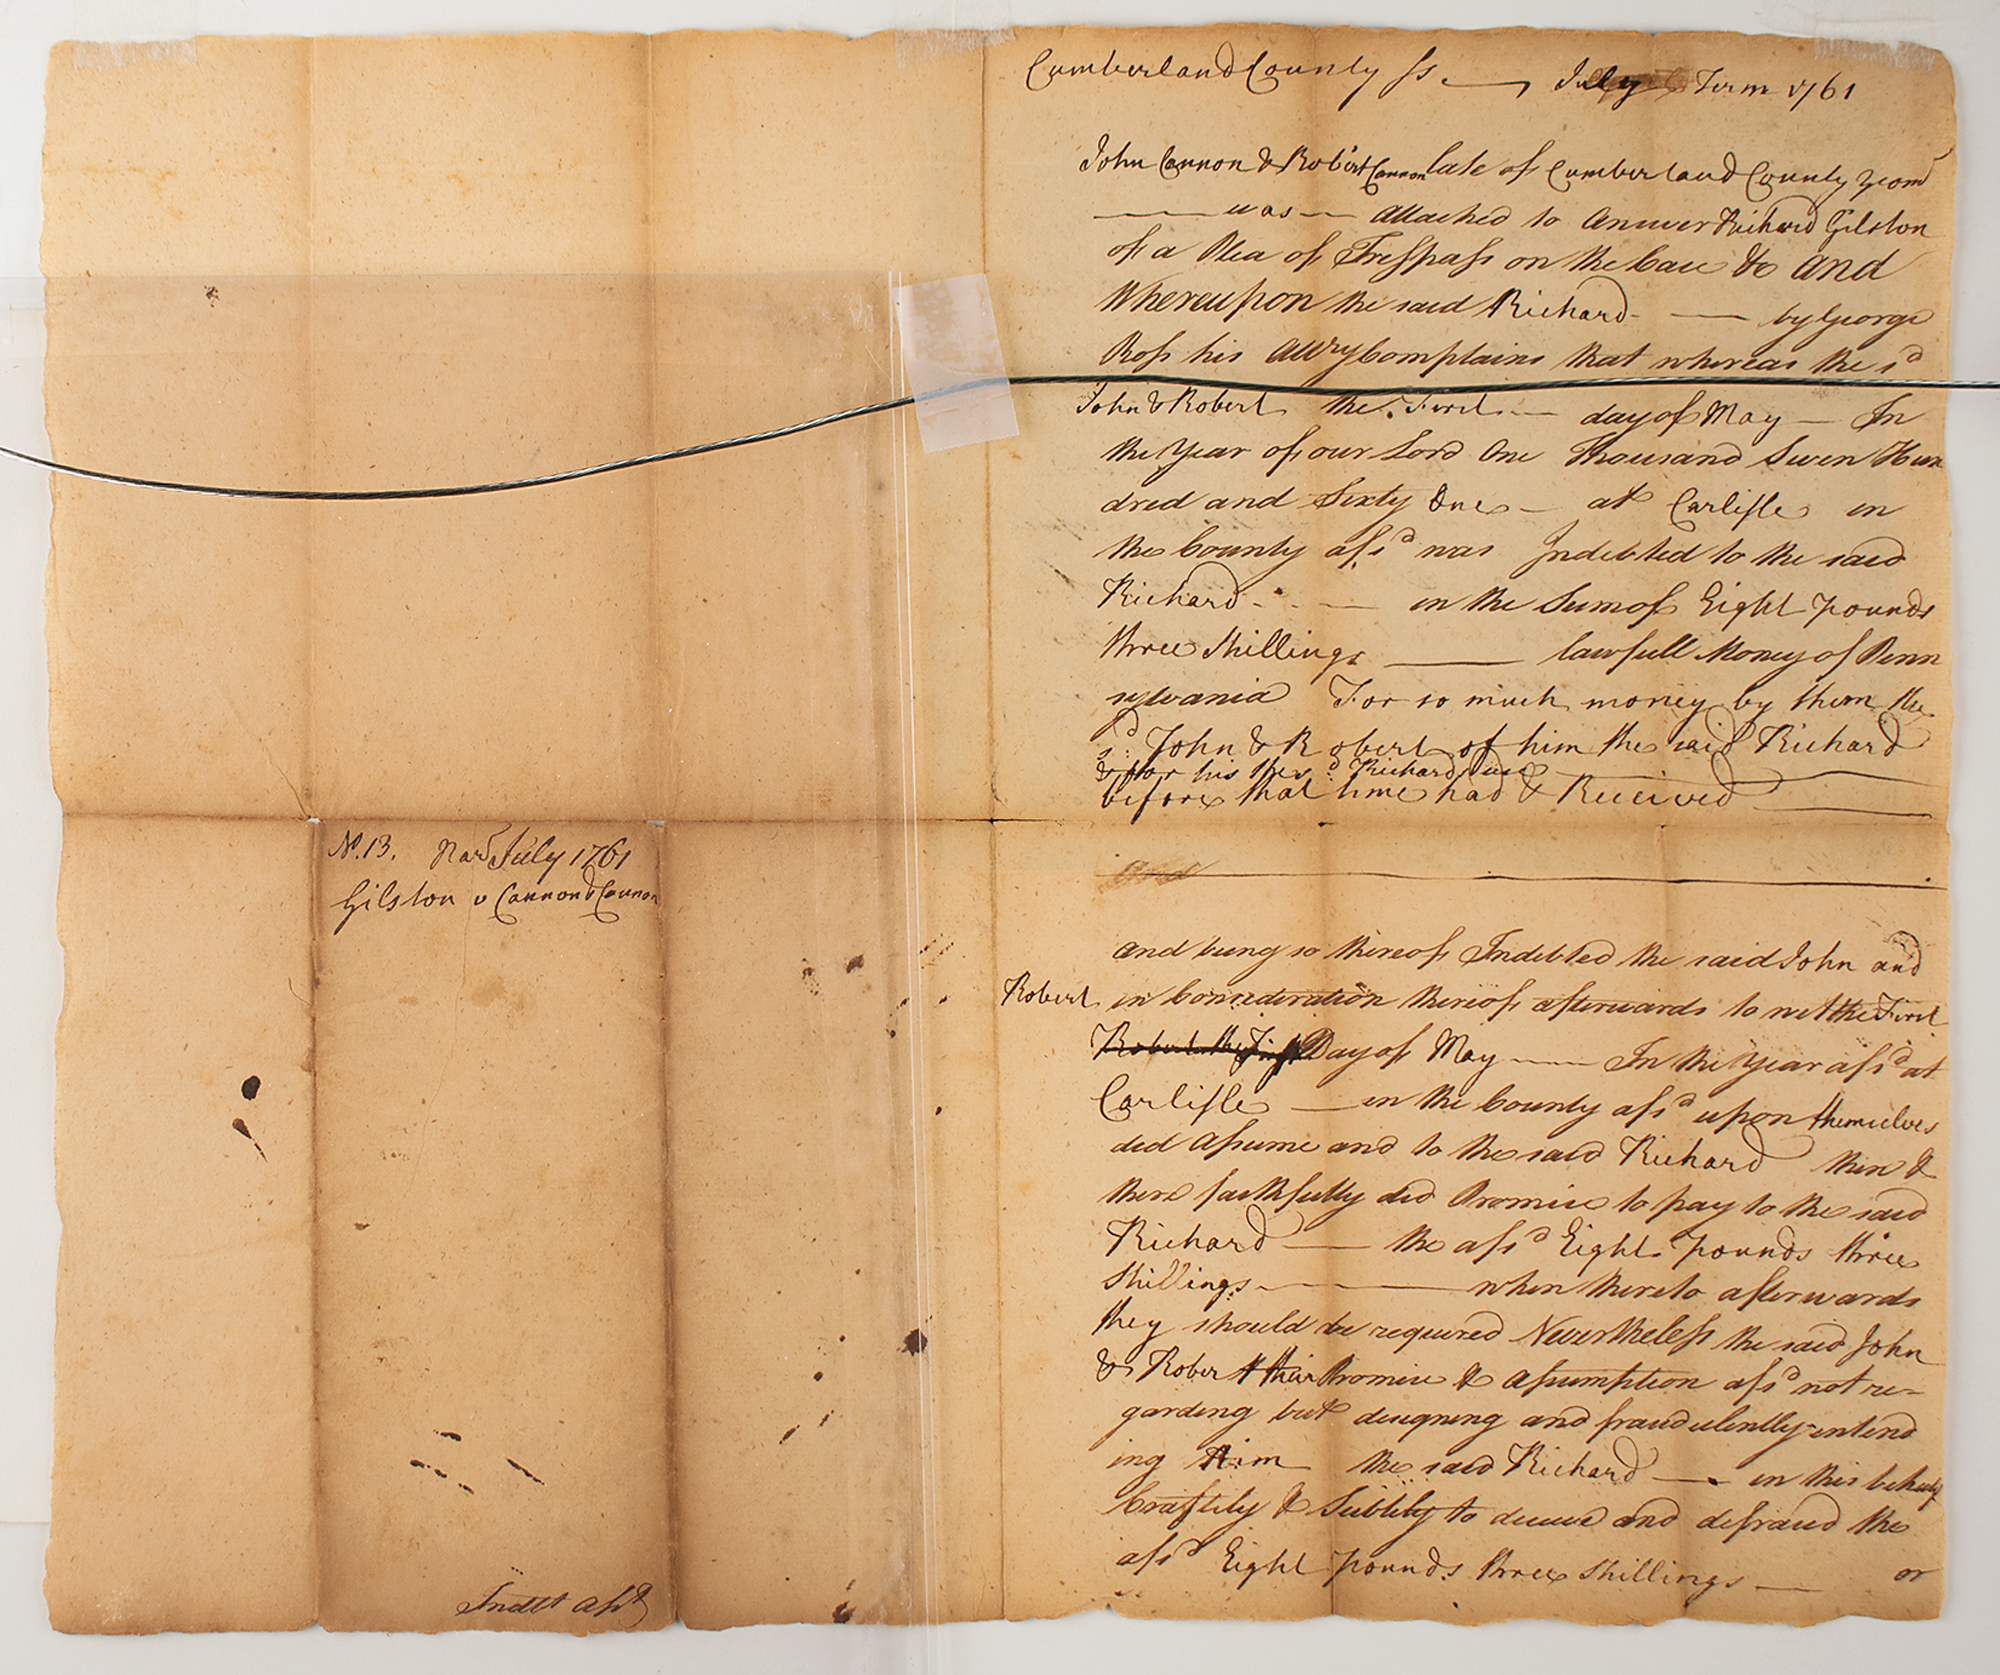 Cumberland County ss. July Term 1761
John Cannon & Robert Cannon late of Cumberland County yeom
was attached to answer Richard Gilston
of a Plea of Trespass on the Case &c and
Whereupon the said Richard by George
Ross his Attry Complains that whereas the sd
John & Robert the First day of May In
the Year of our Lord One Thousand Seven Hun
dred and Sixty One at Carlisle in
the County afsd was Indebted to the said
Richard in the Sum of Eight pounds
three Shillings lawfull Money of Penn
sylvania For so much money by them the
sd: John & Robert of him the said Richard
& for his the sd: Richards use
before that time had & Received
and
and being so thereof Indebted the said John and
Robert in Consideration thereof afterwards to wit the First
Robert the First Day of May In the Year afsd at
Carlisle in the County afsd upon themselves
did assume and to the said Richard then &
there faithfully did Promise to pay to the said
Richard the afsd Eight pounds three
Shillings when thereto afterwards
they should be required Nevertheless the said John
& Robert their Promise & assumption afsd not re-
garding but designing and fraudulently intend
ing Him the said Richard in this behalf
Craftily & Subtily to deceive and defraud the
afsd Eight pounds three Shillings or
No. 13. Nard July 1761
Gilston v Cannon & Cannon
Indebt Asst